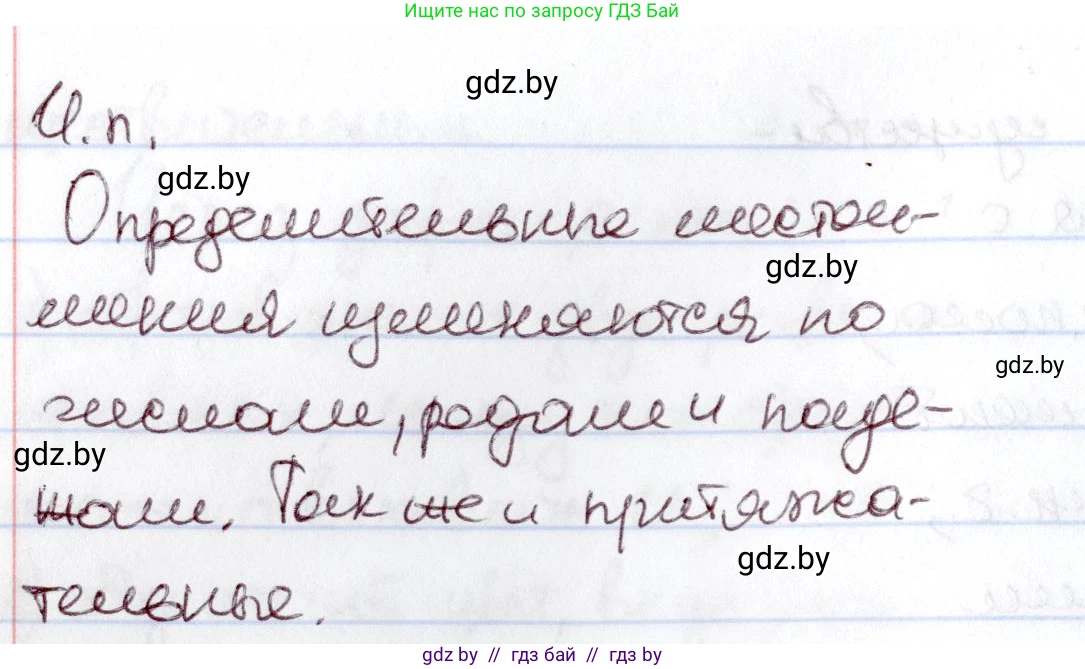 Ищите нас по запросу ГДЗ Бай
gdz.by
И.п.
gdz.by
Определительные местои-
gdz.by
мения изменяются по
gdz.by
числам, родам и паде-
gdz.by
жам. Так же и притяжа-
gdz.by
тельные.
gdz.by // гдз бай // гдз by